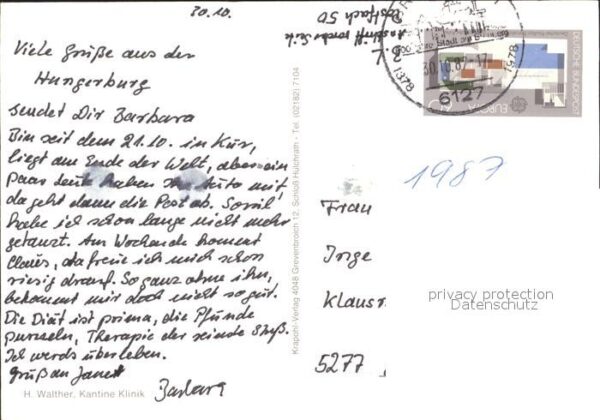 30.10.
Viele Grüße aus der
Hungerburg
sendet Dir Barbara
Bin seit dem 21.10. in Kur,
liegt am Ende der Welt, aber ein
paar Leute haben Auto mit
da geht dann die Post ab. Soviel
habe ich schon lange nicht mehr
getanzt. Am Wochende kommt
Claus, da freue ich mich schon
riesig drauf. So ganz ohne ihn,
bekommt mir doch nicht so gut.
Die Diät ist prima, die Pfunde
purzeln, Therapie der reinste Streß.
Ich werds überleben.
Gruß an Janett
Barbara
H. Walther, Kantine Klinik
Krapohl-Verlag 4048 Grevenbroich 12, Schloß Hülchrath - Tel. (02182) 7104
Postfach 50
1378
1978
30.10.87-17
6127
DEUTSCHE BUNDESPOST
EUROPA
1987
Frau
Inge
Klausr
5277
privacy protection
Datenschutz